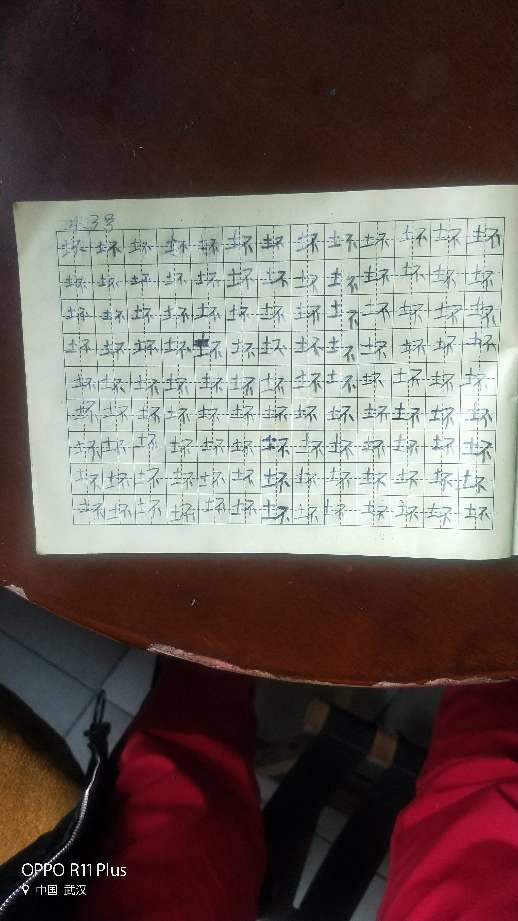 3号
坏坏坏坏坏坏坏坏坏坏坏坏坏
坏坏坏坏坏坏坏坏坏坏坏坏坏
坏坏坏坏坏坏坏坏坏坏坏坏坏
坏坏坏坏坏坏坏坏坏坏坏坏坏
坏坏坏坏坏坏坏坏坏坏坏坏坏
坏坏坏坏坏坏坏坏坏坏坏坏坏
坏坏坏坏坏坏坏坏坏坏坏坏坏
坏坏坏坏坏坏坏坏坏坏坏坏坏
坏坏坏坏坏坏坏坏坏坏坏坏坏
OPPO R11 Plus
中国 武汉